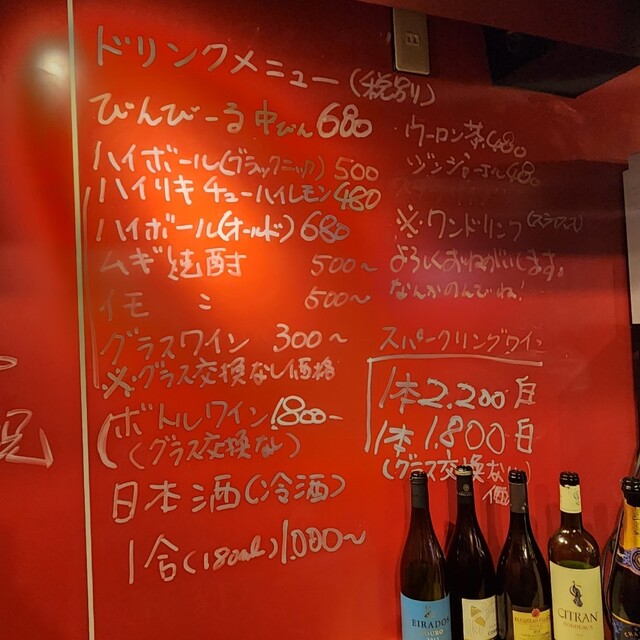 ドリンクメニュー(税別)
びんびーる中びん680
ハイボール(ブラックニッカ)500
ハイリキチューハイレモン480
ハイボール(オールド)680
ムギ焼酎 500〜
イモ 〃 500〜
グラスワイン 300〜
※グラス交換なし価格
ボトルワイン1.800〜
(グラス交換なし)
日本酒(冷酒)
1合(180ml)1.000〜
ウーロン茶480
ジンジャーエール480
※ワンドリンク
よろしくおねがいします。
なんかのんでね!
スパークリングワイン
1本2.200白
1本1.800白
(グラス交換なし
EIRADOS
CITRAN
BORDEAUX